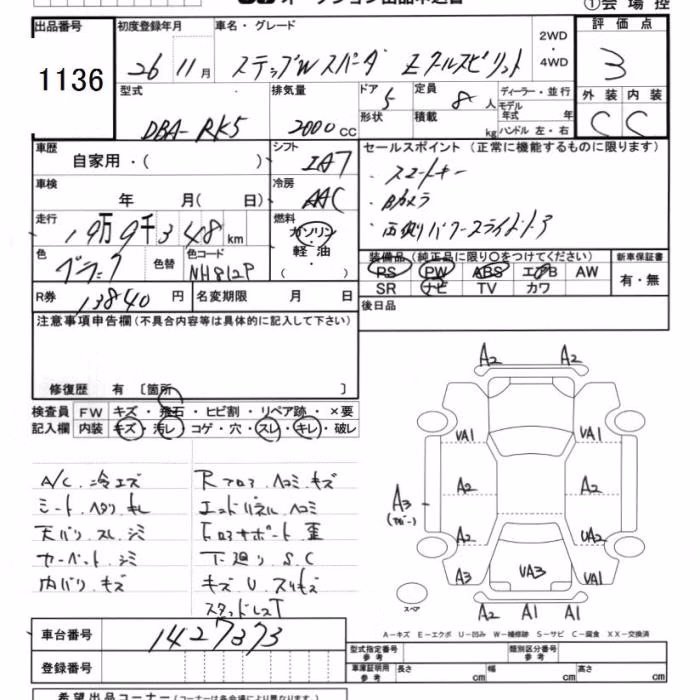 ①会場控
出品番号
1136
初度登録年月
26 11月
車名・グレード
ステップWスパーダ Zクールスピリット
2WD
・
4WD
評価点
3
型式
DBA-RK5
排気量
2000 CC
ドア 5
形状
定員 8 人
積載 kg
ディーラー・並行
モデル
年式 年
ハンドル 左・右
外装 内装
C C
車歴
自家用・( )
シフト
IA7
セールスポイント (正常に機能するものに限ります)
・スマートキー
・Bカメラ
・両側パワースライドドア
車検
年 月( 日)
冷房
AAC
走行
19万9千348 km
燃料
ガソリン・
軽油・
( )
色
ブラック
色替
色コード
NH812P
装備品 (純正品に限り○をつけてください)
PS PW ABS エアB AW
SR ナビ TV カワ
新車保証書
有・無
R券
13840 円
名変期限 月 日
後日品
注意事項申告欄 (不具合内容等は具体的に記入して下さい)
修復歴 有 〔箇所 〕
検査員 FW キズ・飛石・ヒビ割・リペア跡・×要
記入欄 内装 キズ・汚レ・コゲ・穴・スレ・キレ・破レ
A/C.冷エズ
シート.ヘタリ.キレ
天バリ.スレ.シミ
カーペット.シミ
内バリ.キズ
Rフロア.ヘコミ.キズ
エンドパネル.ヘコミ
下廻り.S.C
キズ.U.スリキズ
スタッドレスT
A2 A2
VA1 VA1
A2 A2
A3
A2 UA2
A3 VA3 VA1
A2 A1 A1
スペア
A-キズ E-エクボ U-凹み W-補修跡 S-サビ C-腐食 XX-交換済
車台番号
1427373
登録番号
型式指定番号
参考
類別区分番号
参考
車庫証明用
参考
長さ cm
幅 cm
高さ cm
希望出品コーナー (コーナーは各会場により異なります)